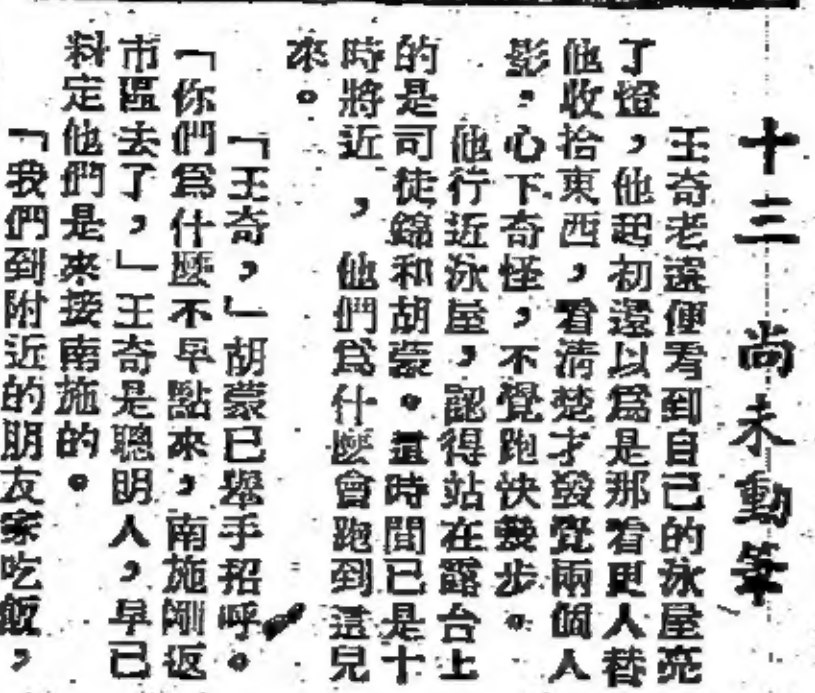 十三 尚未動筆
王奇老遠便看到自己的泳屋亮
了燈，他起初還以爲是那看更人替
他收拾東西，看清楚才發覺兩個人
影，心下奇怪，不覺跑快幾步。
他行近泳屋，認得站在露台上
的是司徒錦和胡蒙。這時間已是十
時將近，他們爲什麼會跑到這兒
來。
「王奇，」胡蒙已舉手招呼。
「你們爲什麼不早點來，南施剛返
市區去了，」王奇是聰明人，早已
料定他們是來接南施的。
「我們到附近的朋友家吃飯，